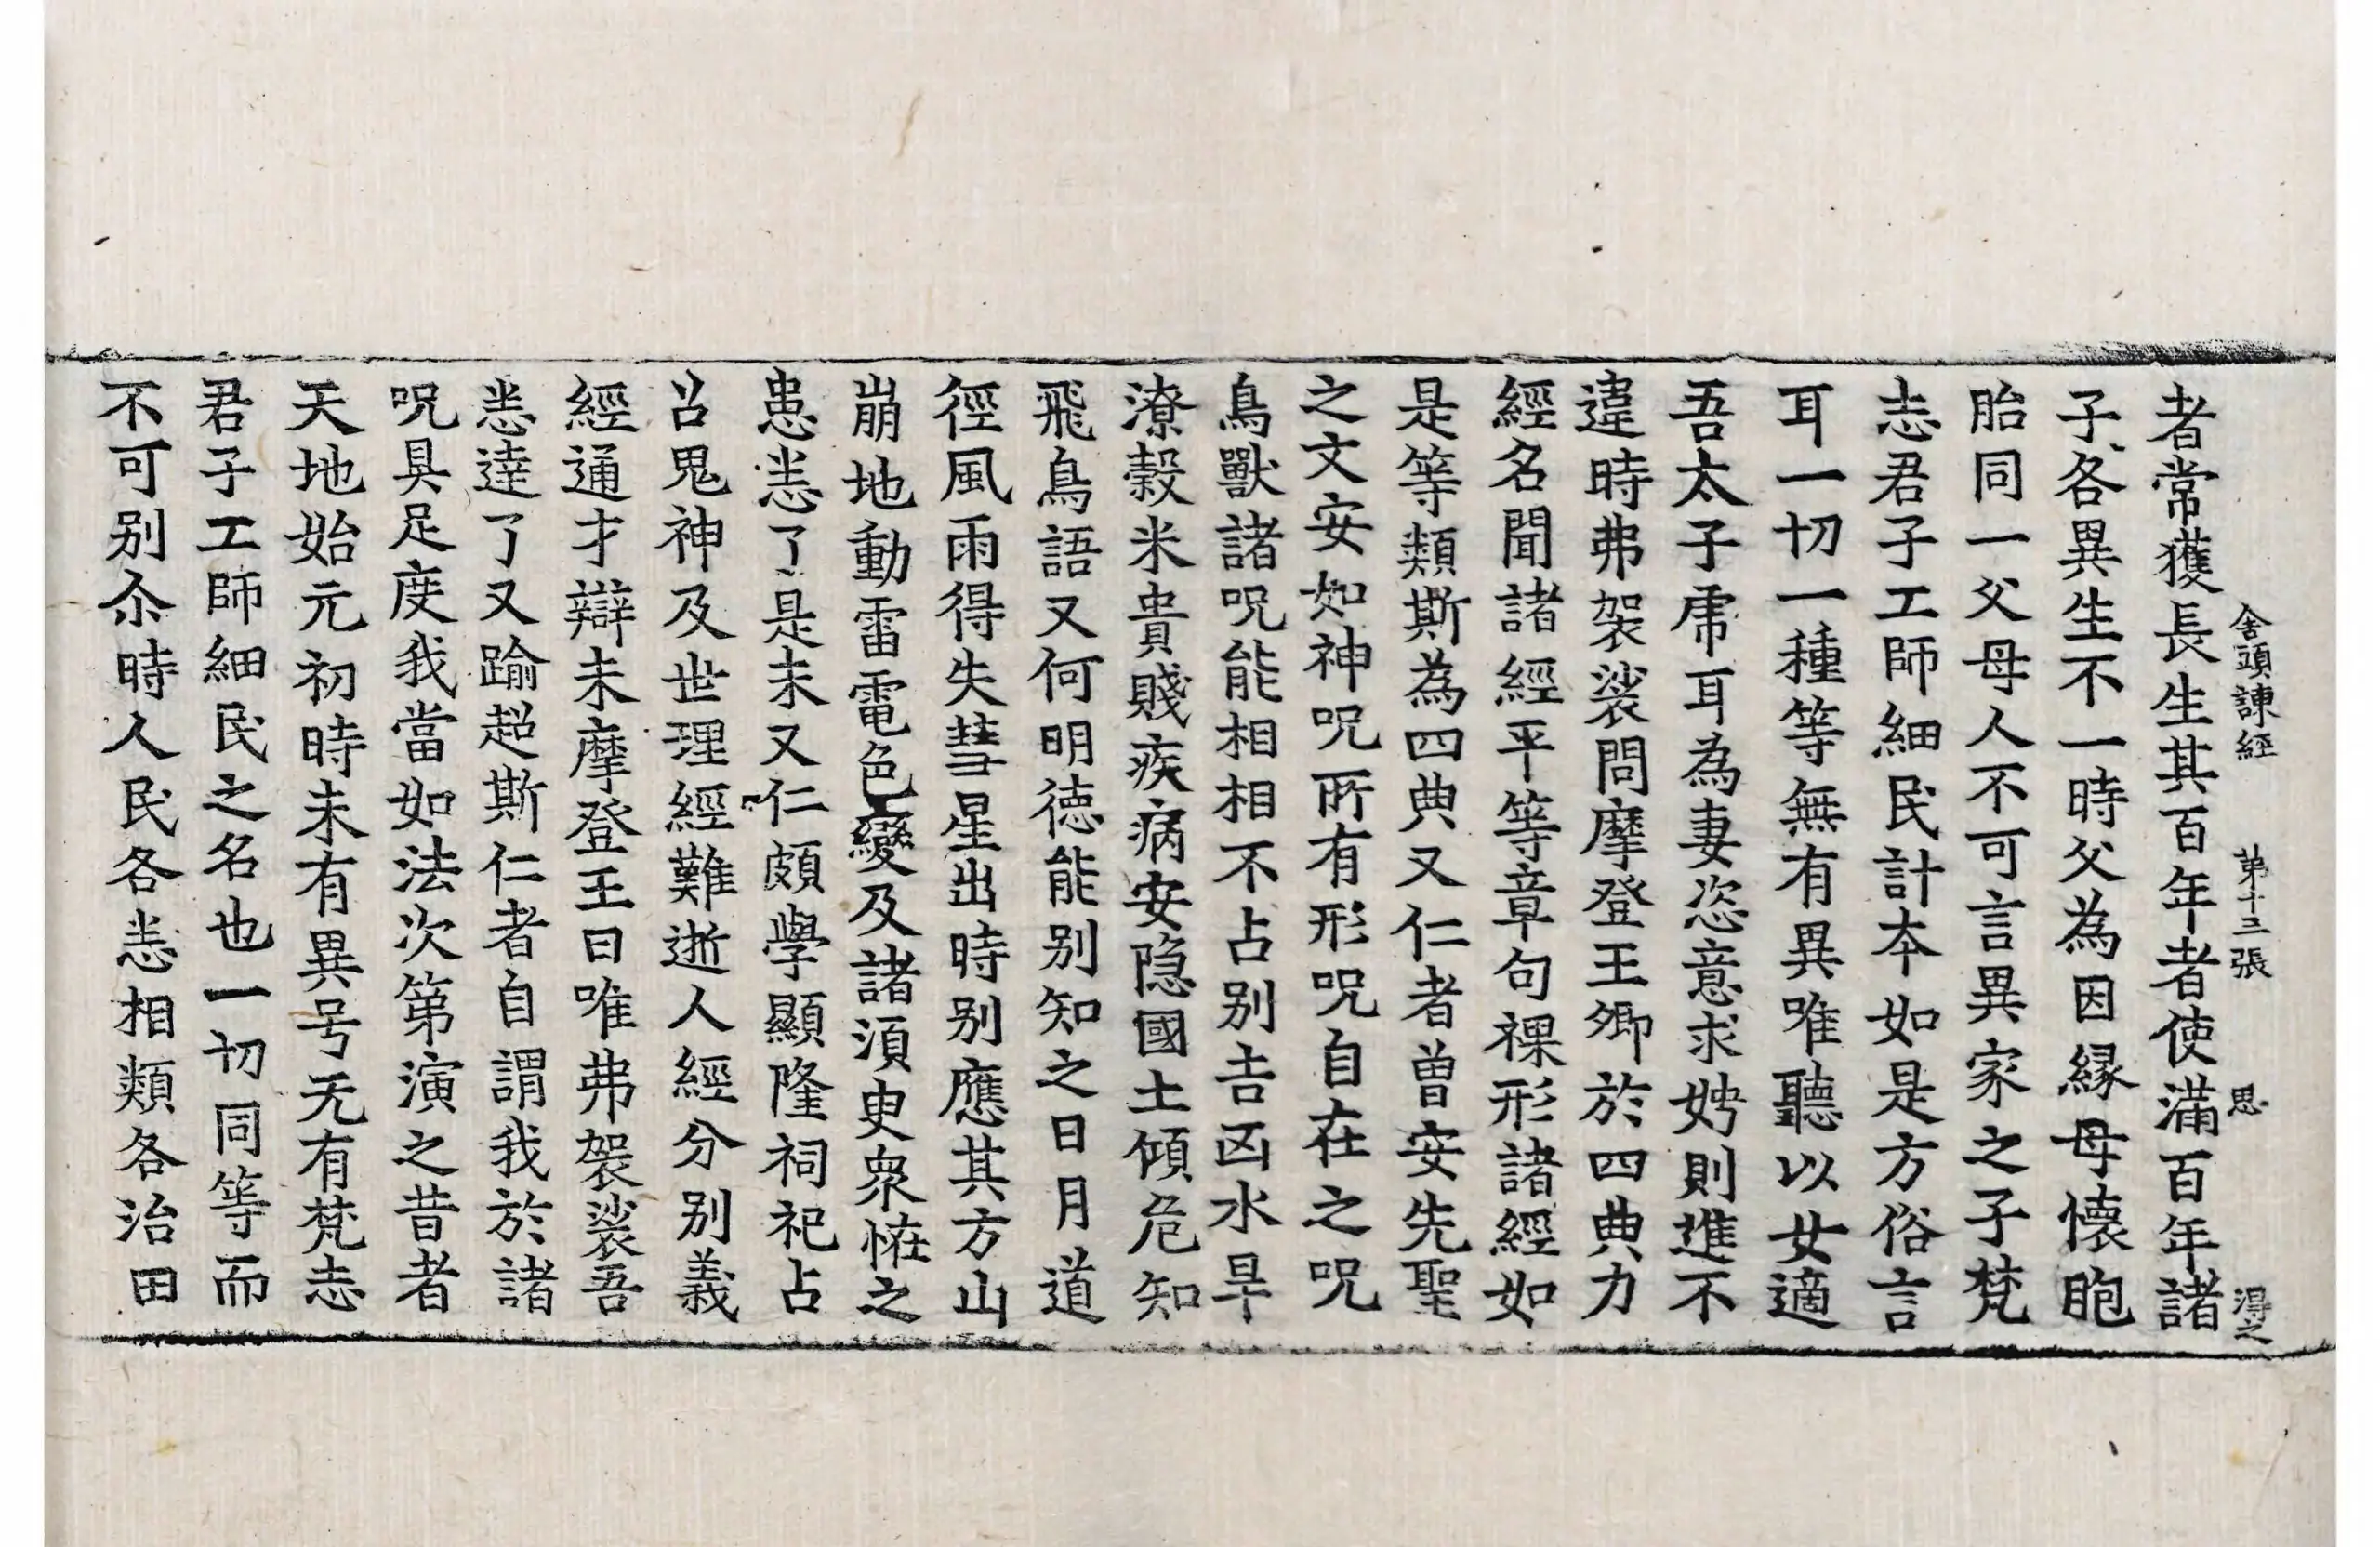 舍頭諫經 苐十三張 思 淂之
者常獲長生其百年者使滿百年諸
子各異生不一時父為因縁母懐胞
胎同一父母人不可言異家之子梵
志君子工師細民計本如是方俗言
耳一切一種等無有異唯聽以女適
吾太子虎耳為妻恣意求娉則進不
違時弗袈裟問摩登王卿於四典力
經名聞諸經平等章句祼形諸經如
是等類斯為四典又仁者曽安先聖
之文安如神呪所有形呪自在之呪
鳥獸諸呪能相相不占别吉凶水旱
潦糓米貴賤疾病安隠國土傾危知
飛鳥語又何明徳能别知之日月道
徑風雨得失彗星出時别應其方山
崩地動雷電色變及諸湏臾衆恠之
患恙了是未又仁頗學顯隆祠祀占
召鬼神及世理經難逝人經分别義
經通才辯未摩登王曰唯弗袈裟吾
悉達了又踰超斯仁者自謂我於諸
呪具足度我當如法次第演之昔者
天地始元初時未有異号无有梵志
君子工師細民之名也一切同等而
不可别尒時人民各悉相類各治田